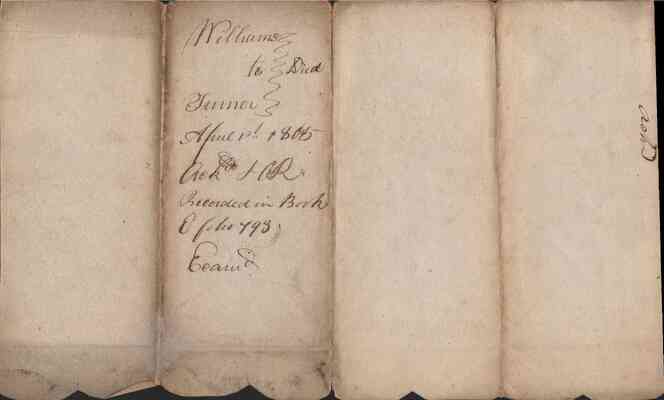 Williams
to Deed
Turner
April 1st 1805
Ackd & OR
Recorded in Book
C folio 793
Examd